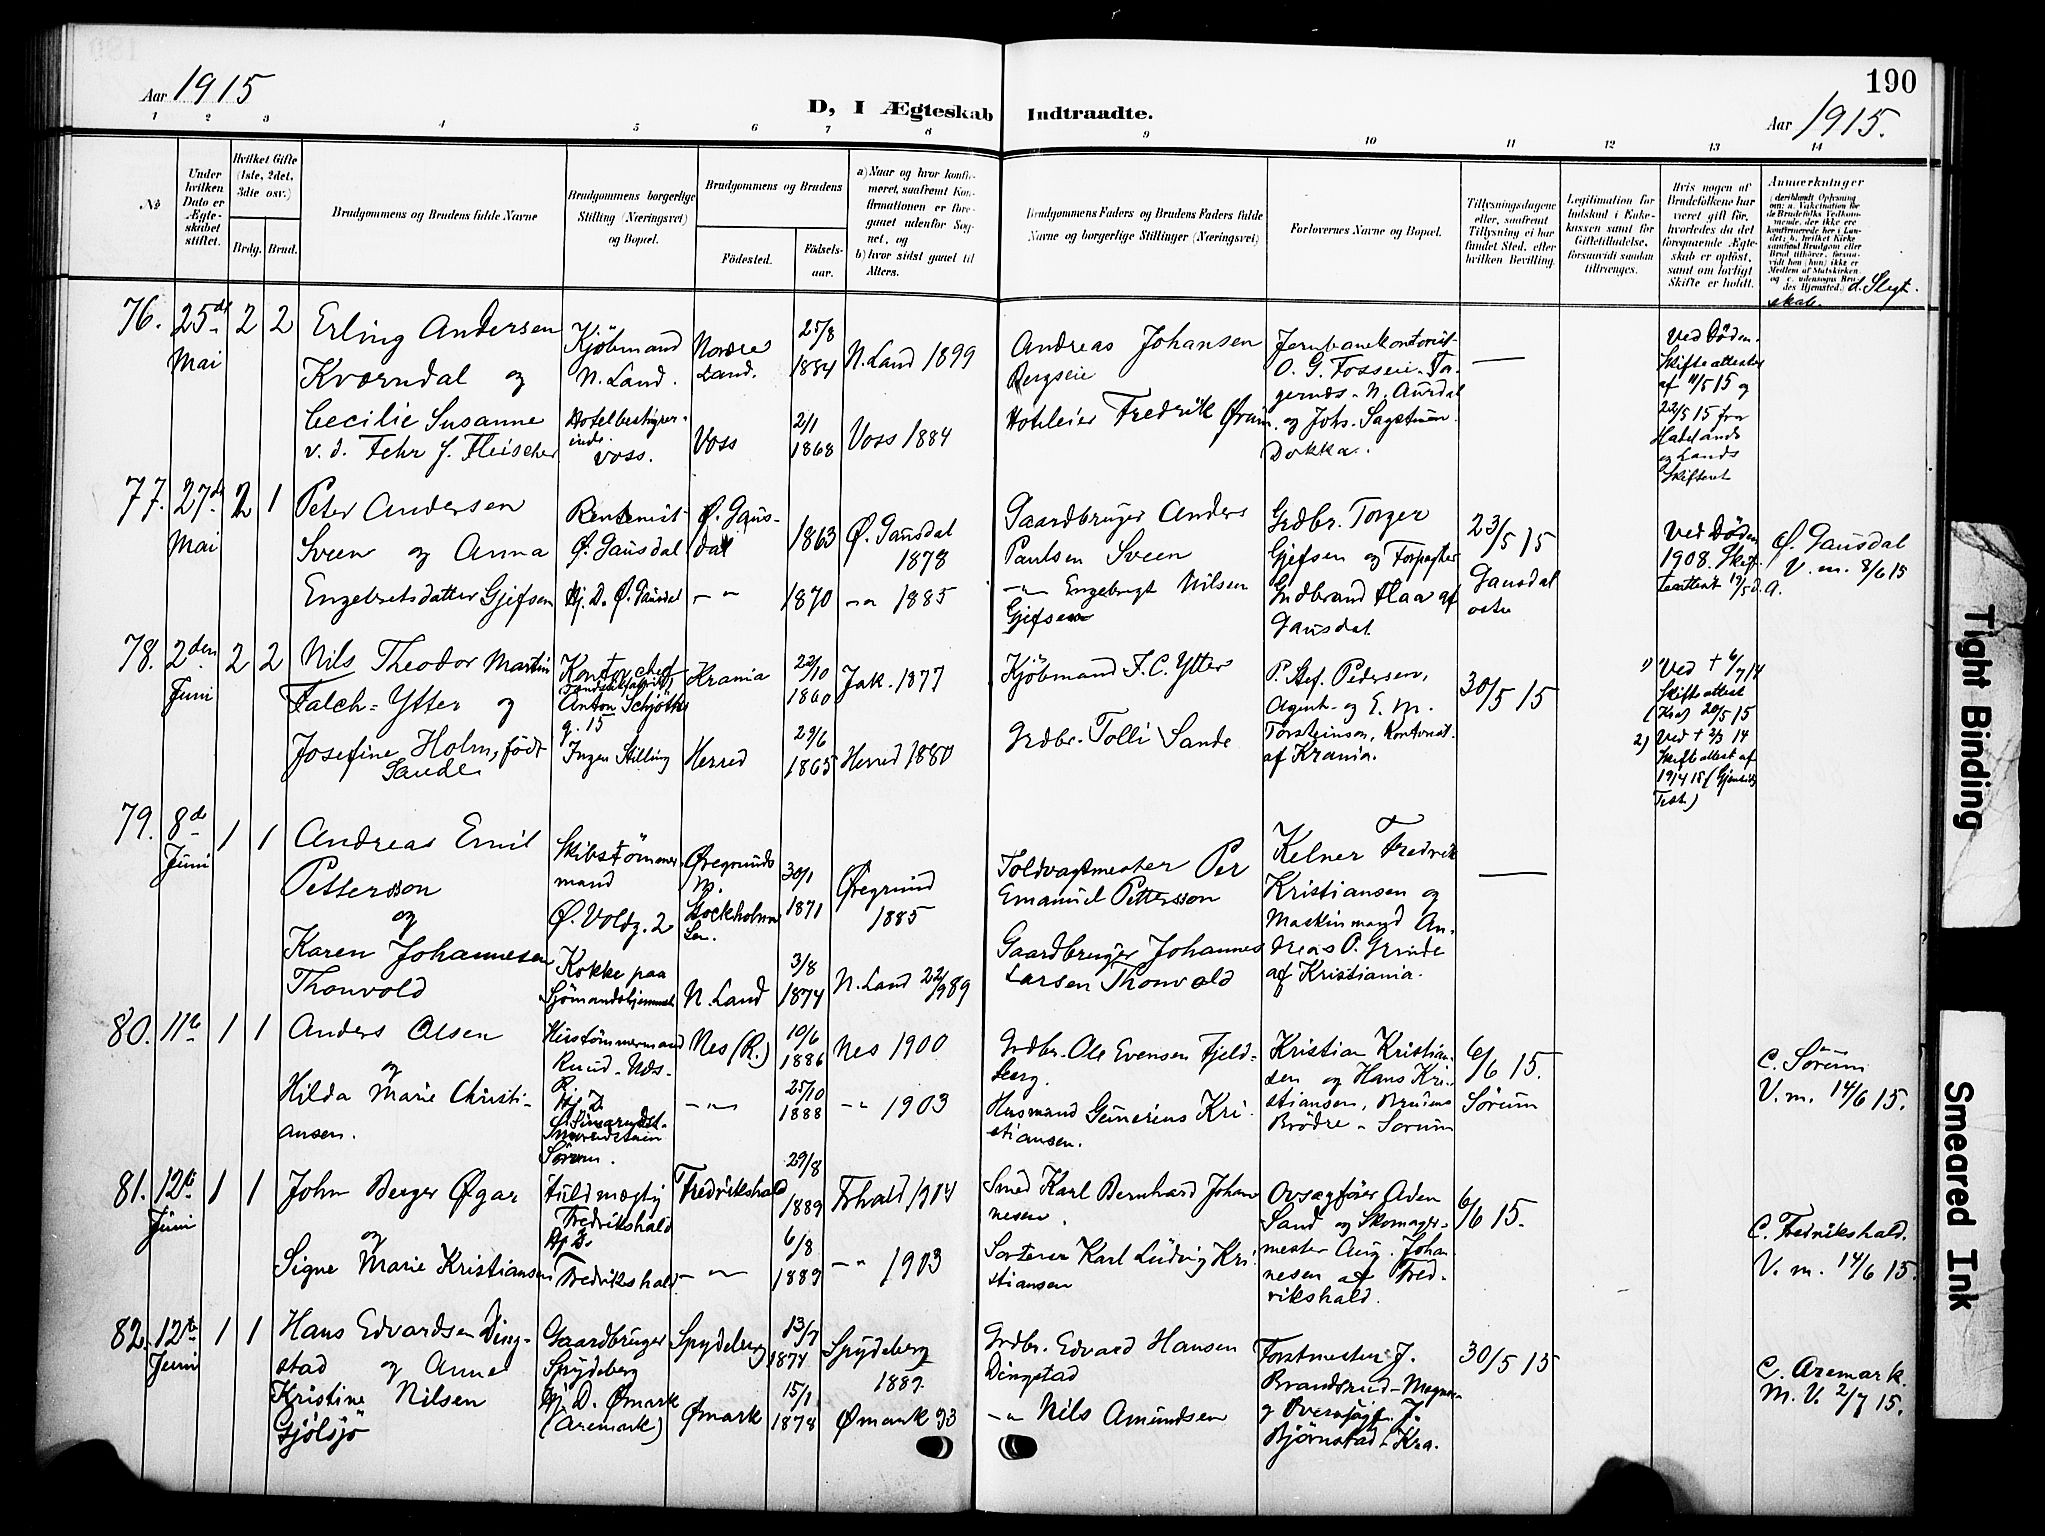 190
Aar 1915
D, I Ægteskab Indtraadte.
Aar 1915.
1 2 3 4 5 6 7 8 9 10 11 12 13 14
No
Under
hvilken
Dato er
Ægte-
skabet
stiftet.
Hvilket Gifte
(1ste, 2det,
3die osv.)
Brdg. Brud.
Brudgommens og Brudens fulde Navne
Brudgommens borgerlige
Stilling (Næringsvei)
og Bopæl.
Brudgommens og Brudens
Fødested.
Fødsels-
aar.
a) Naar og hvor konfir-
meret, saafremt Kon-
firmationen er fore-
gaaet udenfor Sog-
net, og
b) hvor sidst gaaet til
Alters.
Brudgommens Faders og Brudens Faders fulde
Navne og borgerlige Stillinger (Næringsvei)
Forlovernes Navne og Bopæl.
Tillysningsdagene
eller, saafremt
Tillysning ei har
fundet Sted, efter
hvilken Bevilling.
Legitimation for
Indskud i Enke-
kassen samt for
Giftetilladelse,
forsaavidt saadan
tiltrænges.
Hvis nogen af
Brudefolkene har
været gift før,
hvorledes da det
foregaaende Ægte-
skab er opløst,
samt om lovligt
Skifte er holdt.
Anmærkninger
(deriblandt Oplysning
om: a. Vakcination for
de Brudefolks Vedkom-
mende, der ikke ere
konfirmerede her i Lan-
det; b. hvilket Kirke-
samfund Brudgom eller
Brud tilhører, forsaa-
vidt han (hun) ikke er
Medlem af Statskirken,
og c. udensogns Bru-
des Hjemsted.) d. Slegt-
skab.
76. 25de Mai 2 2
Erling Andersen
Kværndal og
Cecilie Susanne
v. d. Fehr f. Fleischer
Kjöbmand
N. Land.
Hotelbestyrer-
inde
Voss.
Nordre
Land.
Voss
25/8
1884
2/1
1868
N. Land 1899
Voss 1884
Andreas Johansen
Bergseie
Hoteleier Fredrik
Jernbanekontorist
O. G. Fosseie
N. Aurdal
og Johs.
Dokka.
—
Ved Døden.
Skifteattester
af 11/5 15 og
22/5 15 fra
Hadelands
og Lands
Skifteret
77. 27de Mai 2 1
Peter Andersen
Sveen og Anna
Engebretsdatter Gjefsen
Rentenist
Ø. Gausdal
Hj. D. Ø. Gausdal
Ø. Gaus-
dal
— " —
1863
1870
Ø. Gausdal
1878
— " — 1885
Gaardbruger Anders
Paulsen Sveen
— " — Engebrigt Nilsen
Gjefsen
Grdbr. Torger
Gjefsen og Forpagter
Gudbrand Flaa af
Gausdal
23/5 15
Gausdal
ostre
Ved Døden
1908. Skif-
teattest 17/5 d.
a.
Ø. Gausdal
V. m. 8/6 15
78. 2den Juni 2 2
Nils Theodor Martin
Falch-Ytter og
Josefine Holm, født
Sande
Kontorchef
Anton Schjöths
g. 15
Ingen Stilling
Krania
Herred
22/10
1860
29/6
1865
Jak. 1877
Herred 1880
Kjöbmand F. C. Ytter
Grdbr. Tolli Sande
P. Stef. Pedersen,
Agent og E. M.
Torsteinson, Kontorist.
af Krania.
30/5 15
1) Ved + 6/7 14
Skifteattest
(Kra) 20/5 15
2) Ved + 2/3 14
Skifteattest af
19/4 15
79. 8de Juni 1 1
Andreas Emil
Pettersson
og
Karen Johannesen
Thonvold
Skibstömmer-
mand
Ø. Voldg. 2
Kokke paa
Sjömandshjemmet
Øregrunds
Stockholms
Len.
N. Land
30/1
1871
3/8
1874
Øregrund
1885
N. Land 22/9 89
Toldvagtmester Per
Emanuel Pettersson
Gaardbruger Johannes
Larsen Thonvold
Kelner Fredrik
Kristiansen og
Maskinmand An-
dreas P. Grinde
af Kristiania.
—
80. 11te 1 1
Anders Olsen
og
Hilda Marie Christi-
ansen.
Hustömmermand
Ruud - Næs -
R.
Hj. D.
Sörum.
Nes (R.)
— " —
10/6
1886
25/10
1888
Nes 1900
— " — 1903
Grdbr. Ole Evensen Fjeld-
berg.
Husmand Gunerius Kri-
stiansen.
Kristian Kristian-
sen og Hans Kri-
stiansen, Brudens
Brödre - Sorum
6/6 15.
Sörum
C. Sörum
V. m. 14/6 15.
81. 12te Juni 1 1
John Berger Øgar
og
Signe Marie Kristiansen
Fuldmægtig
Fredrikshald
Hj. D.
Fredrikshald
Fredrikshald
— " —
29/8
1889
6/8
1889
Frhald 1904
— " — 1903
Smed Karl Bernhard Johan-
nesen.
Sorterer Karl Ludvig Kri-
stiansen
Ovsagfører Aden
Sand og Skomager-
mester Aug. Johan-
nesen af Fred-
rikshald.
6/6 15.
C. Fredrikshald.
V. m. 14/6 15.
82. 12te Juni 1 1
Hans Edvardsen Ding-
stad og Anne
Kristine Nilsen
Gjölsjö
Gaardbruger
Spydeberg
Hj. D. Ømark
(Aremark)
Spydeberg
Ømark
13/7
1874
15/1
1878
Spydeberg
1889.
Ømark 93
Grdbr. Edvard Hansen
Dingstad
— " — Nils Amundsen
Forstmester J.
Brandsrud - Magnor
og Oversagf. J.
Björnstad - Kra.
30/5 15
C. Aremark.
M. V. 2/7 15.
Tight Binding
Smeared Ink